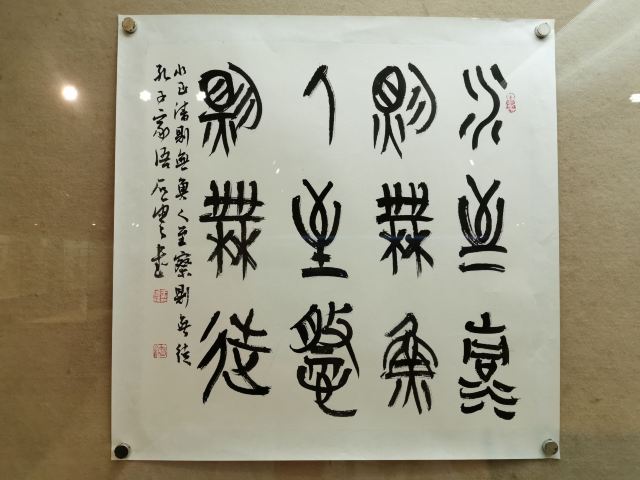 水至清
則無魚
人至察
則無徒
水至清則無魚人至察則無徒
孔子家語